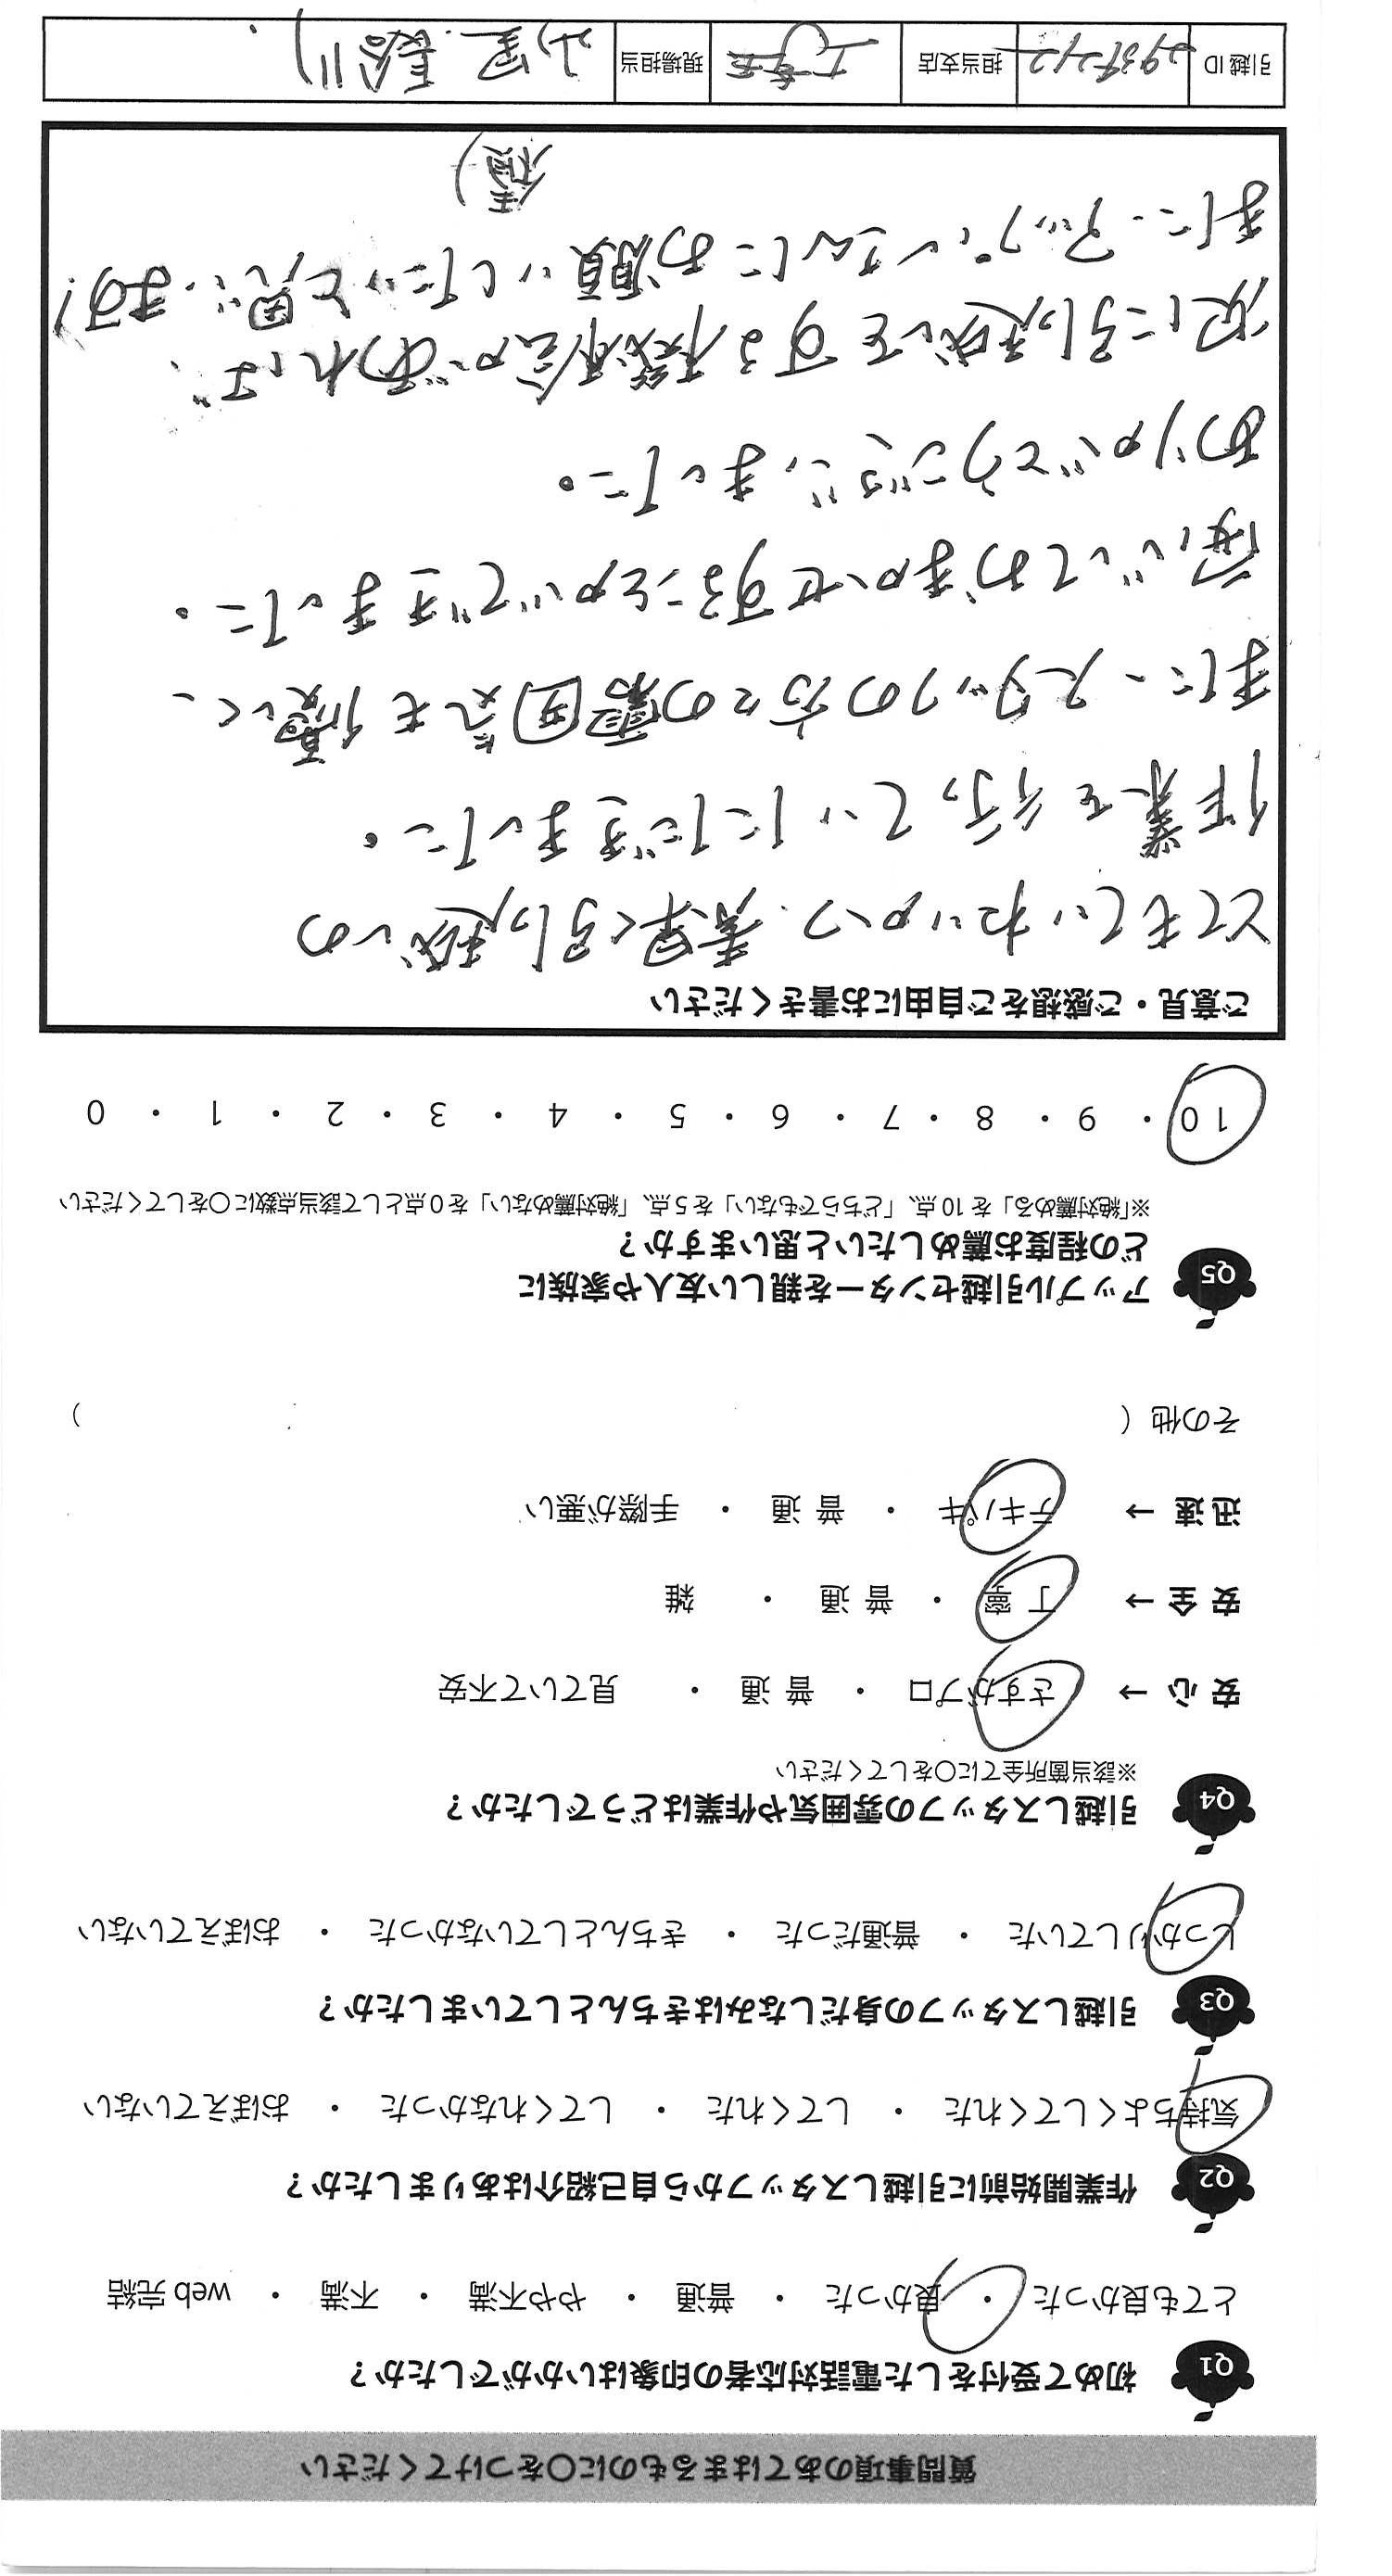 質問事項のあてはまるものに○をつけてください
Q1 初めて受付をした電話対応者の印象はいかがでしたか？
とても良かった ・ 良かった ・ 普通 ・ やや不満 ・ 不満 ・ web 完結
Q2 作業開始前に引越しスタッフから自己紹介はありましたか？
気持ちよくしてくれた ・ してくれた ・ してくれなかった ・ おぼえていない
Q3 引越しスタッフの身だしなみはきちんとしていましたか？
しっかりしていた ・ 普通だった ・ きちんとしていなかった ・ おぼえていない
Q4 引越しスタッフの雰囲気や作業はどうでしたか？
※該当箇所全てに○をしてください
安 心 → さすがプロ ・ 普 通 ・ 見ていて不安
安 全 → 丁 寧 ・ 普 通 ・ 雑
迅 速 → テキパキ ・ 普 通 ・ 手際が悪い
その他（ ）
Q5 アップル引越センターを親しい友人や家族に
どの程度お薦めしたいと思いますか？
※「絶対薦める」を 10 点、「どちらでもない」を 5 点、「絶対薦めない」を 0 点として該当点数に○をしてください
10 ・ 9 ・ 8 ・ 7 ・ 6 ・ 5 ・ 4 ・ 3 ・ 2 ・ 1 ・ 0
ご意見・ご感想をご自由にお書きください
とてもていねいかつ、素早く引っ越しの
作業を行っていただきました。
また、スタッフの方々の雰囲気も優しく、
安心しておまかせすることができました。
ありがとうございました。
次に引っ越しをする機会があれば、
また、アップルさんにお願いしたいと思います!
引越 ID 担当支店 現場担当 長谷川